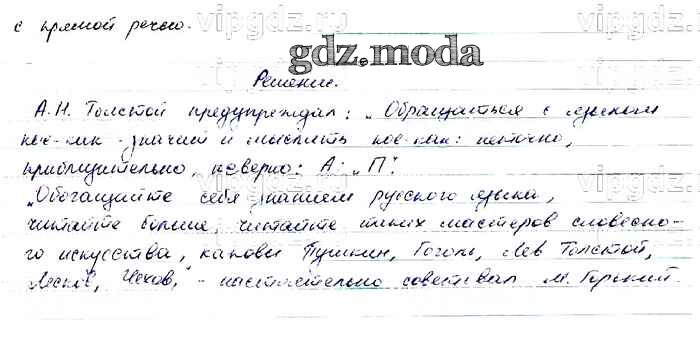 с прямой речью.
vipgdz.ru
vipgdz.ru
gdz.moda
Решение.
А.Н. Толстой предупреждал: „Обращаться с языком
кое-как - значит и мыслить кое-как: неточно,
приблизительно, неверно: А: „П".
„Обогащайте себя знанием русского языка,
читайте больше, читайте таких мастеров словесно-
го искусства, каковы Пушкин, Гоголь, Лев Толстой,
Лесков, Чехов," - настоятельно советовал М. Горький.